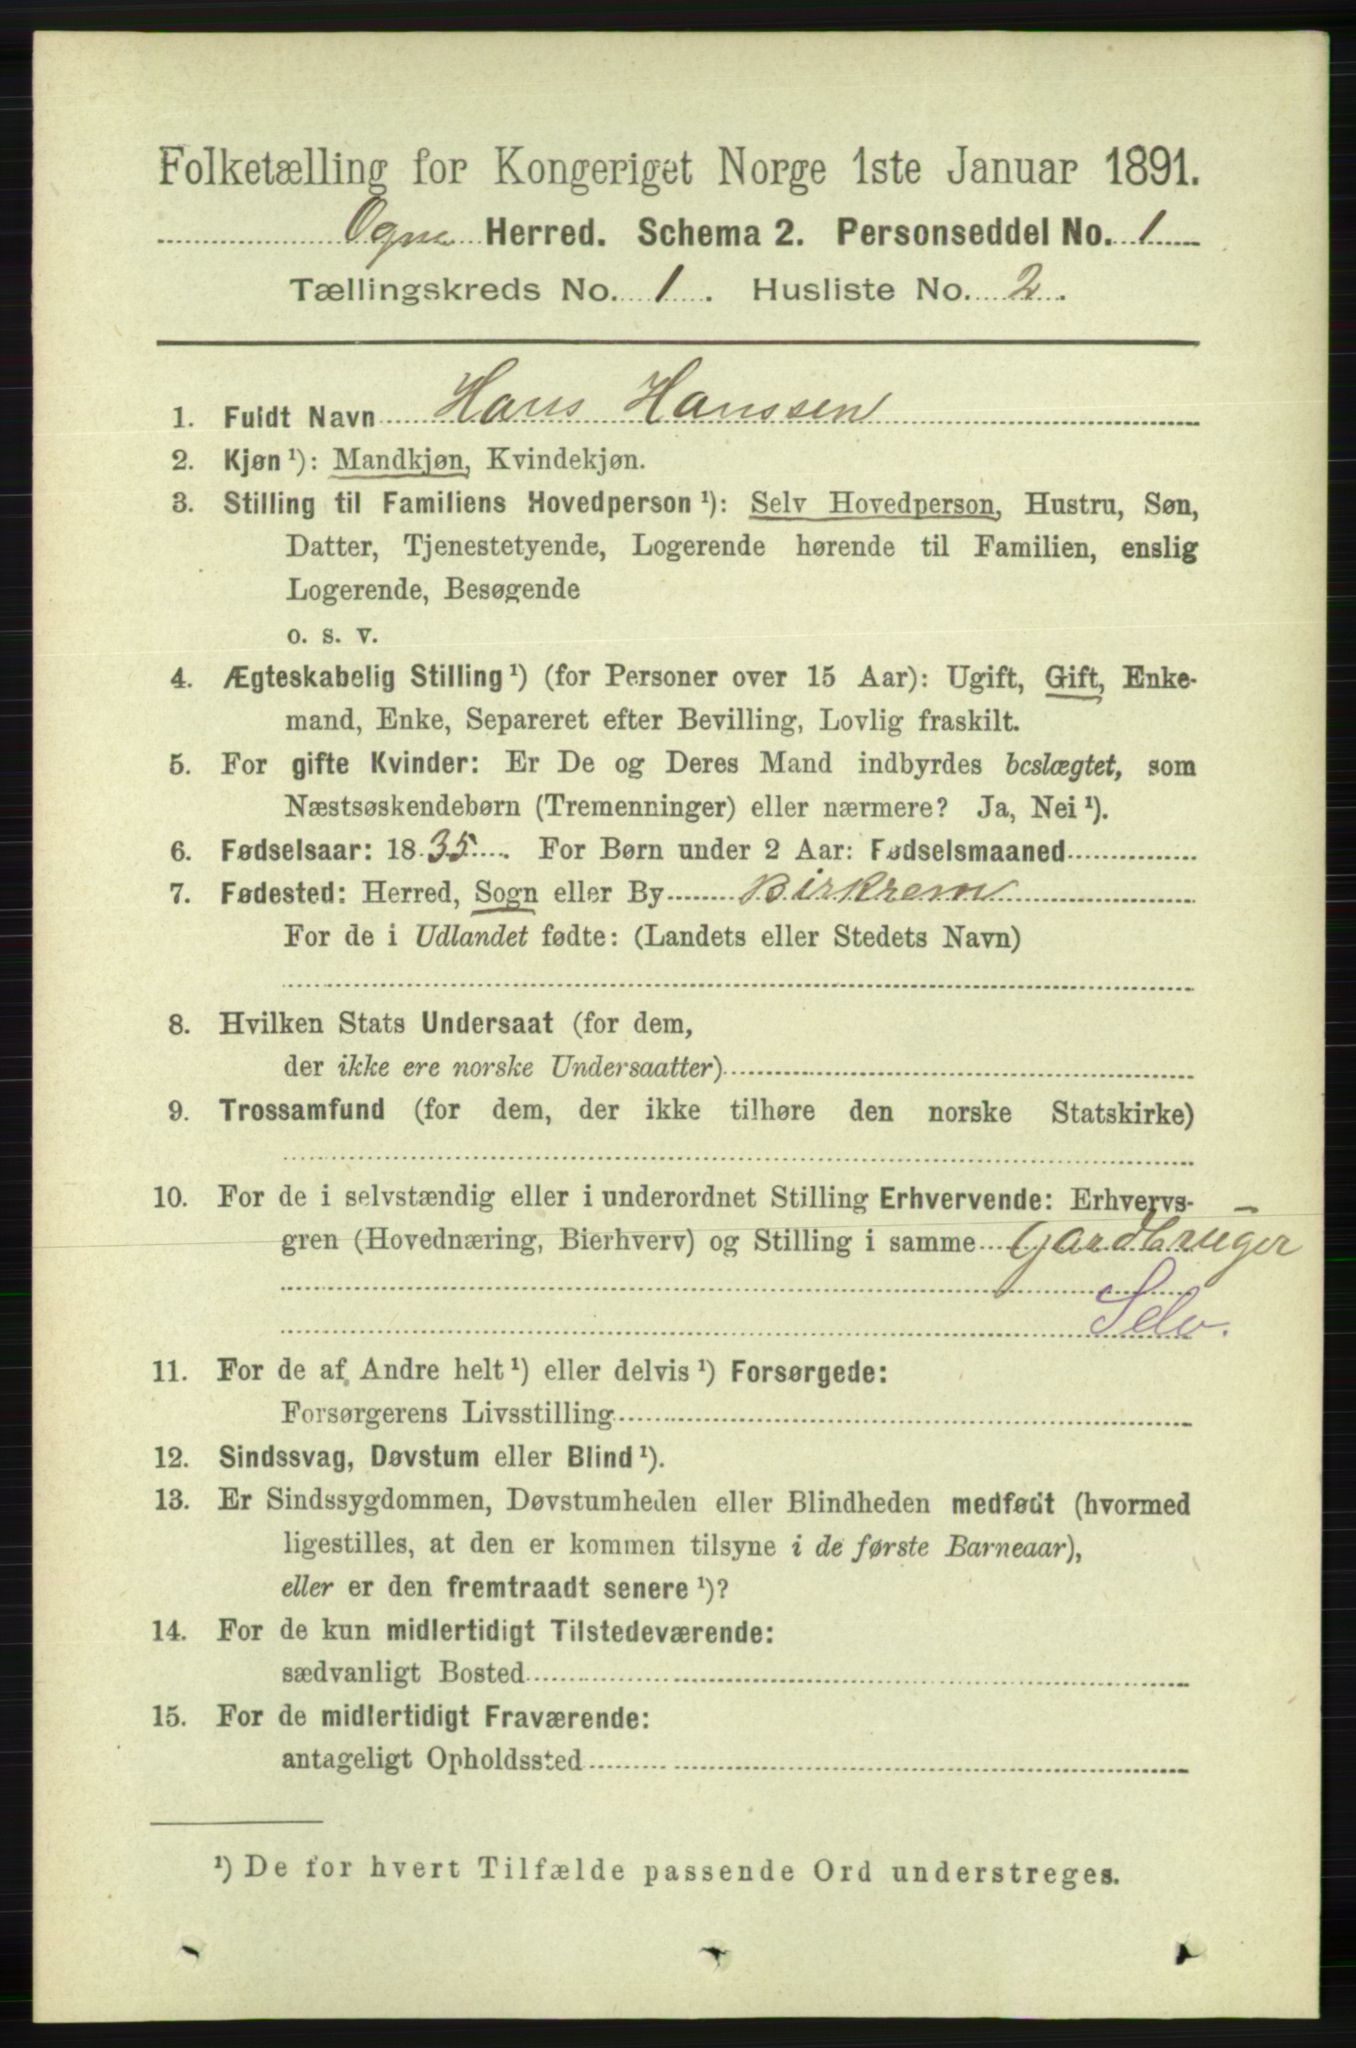 Folketælling for Kongeriget Norge 1ste Januar 1891.
Ogne Herred. Schema 2. Personseddel No. 1
Tællingskreds No. 1. Husliste No. 2.
1. Fuldt Navn Hans Hanssen
2. Kjøn¹): Mandkjøn, Kvindekjøn.
3. Stilling til Familiens Hovedperson¹): Selv Hovedperson, Hustru, Søn,
Datter, Tjenestetyende, Logerende hørende til Familien, enslig
Logerende, Besøgende
o. s. v.
4. Ægteskabelig Stilling¹) (for Personer over 15 Aar): Ugift, Gift, Enke-
mand, Enke, Separeret efter Bevilling, Lovlig fraskilt.
5. For gifte Kvinder: Er De og Deres Mand indbyrdes beslægtet, som
Næstsøskendebørn (Tremenninger) eller nærmere? Ja, Nei¹).
6. Fødselsaar: 1835. For Børn under 2 Aar: Fødselsmaaned
7. Fødested: Herred, Sogn eller By Birkrem
For de i Udlandet fødte: (Landets eller Stedets Navn)
8. Hvilken Stats Undersaat (for dem,
der ikke ere norske Undersaatter)
9. Trossamfund (for dem, der ikke tilhøre den norske Statskirke)
10. For de i selvstændig eller i underordnet Stilling Erhvervende: Erhvervs-
gren (Hovednæring, Bierhverv) og Stilling i samme Gardbruger
Selv.
11. For de af Andre helt¹) eller delvis¹) Forsørgede:
Forsørgerens Livsstilling
12. Sindssvag, Døvstum eller Blind¹).
13. Er Sindssygdommen, Døvstumheden eller Blindheden medfødt (hvormed
ligestilles, at den er kommen tilsyne i de første Barneaar),
eller er den fremtraadt senere¹)?
14. For de kun midlertidigt Tilstedeværende:
sædvanligt Bosted
15. For de midlertidigt Fraværende:
antageligt Opholdssted
¹) De for hvert Tilfælde passende Ord understreges.